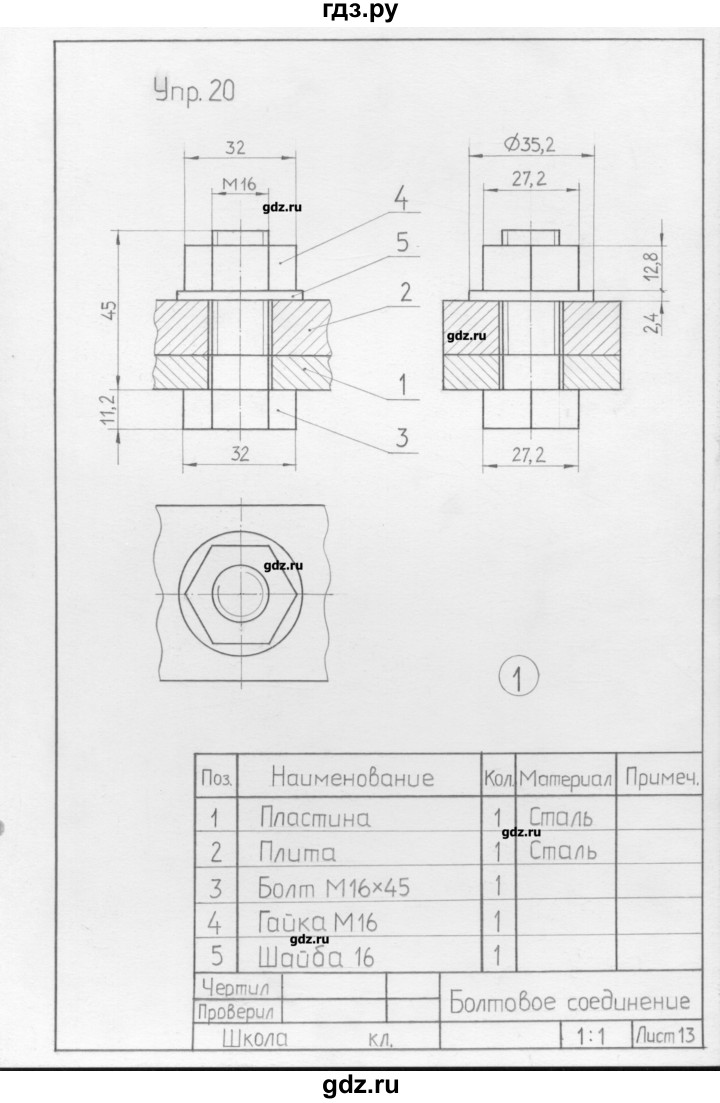 гдз.ру
Упр. 20
32
M16
gdz.ru
4
5
2
1
3
45
11,2
32
Ø35,2
27,2
12,8
2,4
gdz.ru
27,2
gdz.ru
1
Поз. Наименование Кол. Материал Примеч.
1 Пластина 1 Сталь
gdz.ru
2 Плита 1 Сталь
3 Болт М16×45 1
4 Гайка М16 1
gdz.ru
5 Шайба 16 1
Чертил
Проверил
Болтовое соединение
Школа кл. 1:1 Лист 13
gdz.ru